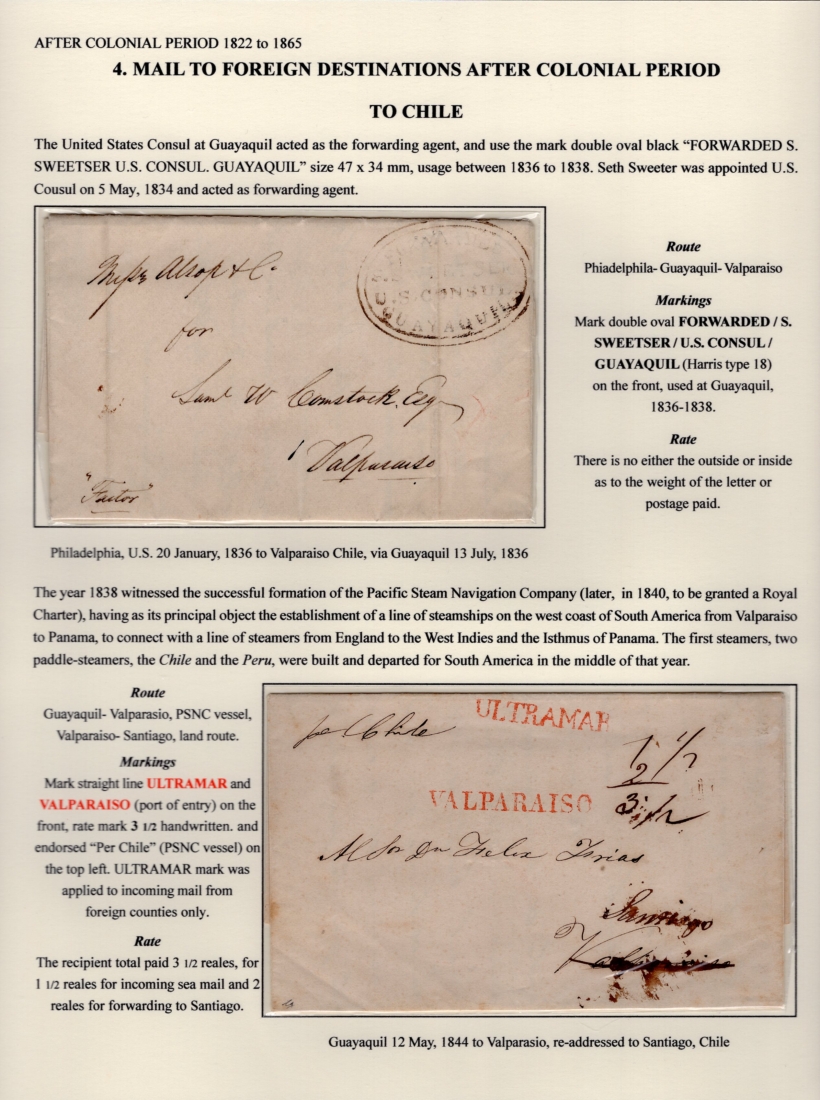 AFTER COLONIAL PERIOD 1822 to 1865
4. MAIL TO FOREIGN DESTINATIONS AFTER COLONIAL PERIOD
TO CHILE
The United States Consul at Guayaquil acted as the forwarding agent, and use the mark double oval black “FORWARDED S.
SWEETSER U.S. CONSUL. GUAYAQUIL” size 47 x 34 mm, usage between 1836 to 1838. Seth Sweeter was appointed U.S.
Cousul on 5 May, 1834 and acted as forwarding agent.
Messrs Alsop & Co
for
Saml W Comstock, Esq
Valparaiso
"Factor"
U.S. CONSUL
GUAYAQUIL
Route
Phiadelphila- Guayaquil- Valparaiso
Markings
Mark double oval FORWARDED / S.
SWEETSER / U.S. CONSUL /
GUAYAQUIL (Harris type 18)
on the front, used at Guayaquil,
1836-1838.
Rate
There is no either the outside or inside
as to the weight of the letter or
postage paid.
Philadelphia, U.S. 20 January, 1836 to Valparaiso Chile, via Guayaquil 13 July, 1836
The year 1838 witnessed the successful formation of the Pacific Steam Navigation Company (later, in 1840, to be granted a Royal
Charter), having as its principal object the establishment of a line of steamships on the west coast of South America from Valparaiso
to Panama, to connect with a line of steamers from England to the West Indies and the Isthmus of Panama. The first steamers, two
paddle-steamers, the Chile and the Peru, were built and departed for South America in the middle of that year.
Route
Guayaquil- Valparasio, PSNC vessel,
Valparaiso- Santiago, land route.
Markings
Mark straight line ULTRAMAR and
VALPARAISO (port of entry) on the
front, rate mark 3 1/2 handwritten. and
endorsed “Per Chile” (PSNC vessel) on
the top left. ULTRAMAR mark was
applied to incoming mail from
foreign counties only.
Rate
The recipient total paid 3 1/2 reales, for
1 1/2 reales for incoming sea mail and 2
reales for forwarding to Santiago.
per Chile
ULTRAMAR
1 1/2
2
3 1/2
VALPARAISO
Al Sor Dn Felix Frias
Santiago
Valparaiso
Guayaquil 12 May, 1844 to Valparasio, re-addressed to Santiago, Chile